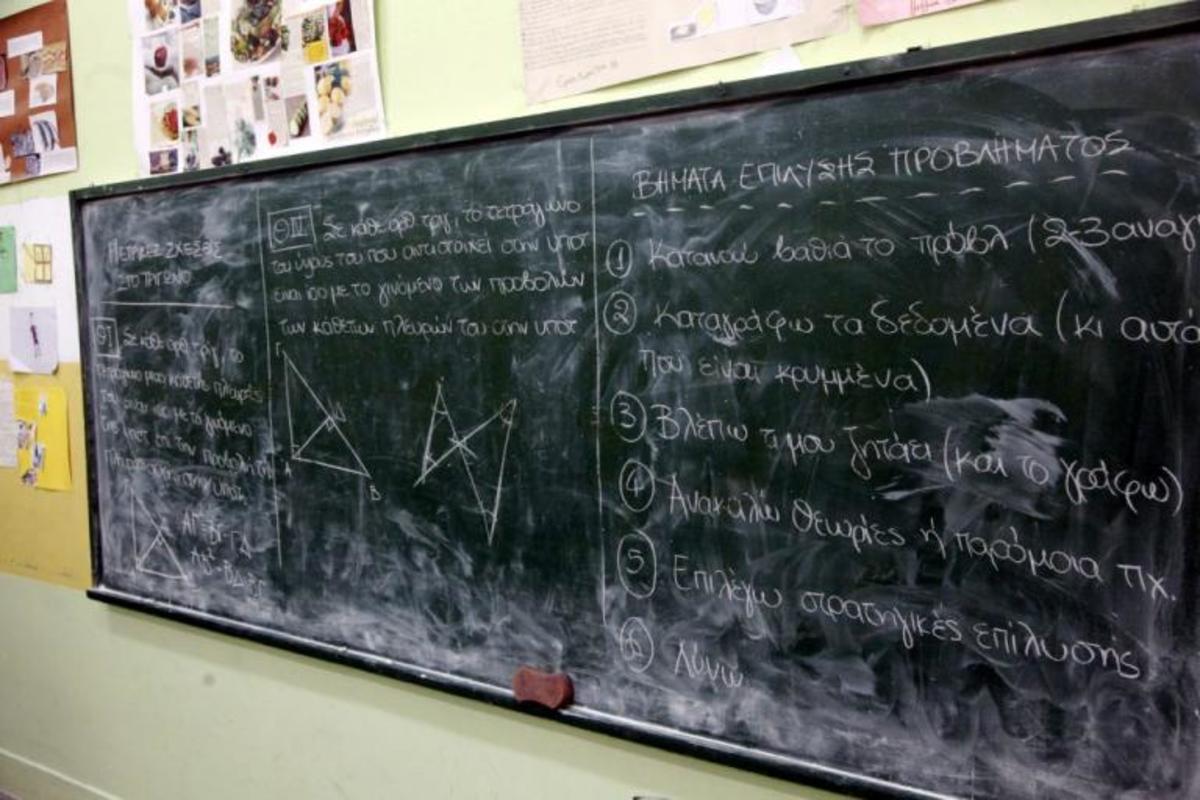 ΜΕΤΡΙΚΕΣ ΣΧΕΣΕΙΣ
ΣΤΟ ΤΡΙΓΩΝΟ
ΘΙ Σε κάθε ορθ τριγ, το
τετράγωνο μιας κάθετης πλευράς
του είναι ίσο με το γινόμενο
της υποτ επί την προβολή της
πλευράς αυτής στην υποτ.
ΑΓ² = ΒΓ·ΓΔ
ΑΒ² = ΒΔ·ΒΓ
ΘΙΙ Σε κάθε ορθ τριγ, το τετράγωνο
του ύψους του που αντιστοιχεί στην υποτ
είναι ίσο με το γινόμενο των προβολών
των κάθετων πλευρών του στην υποτ
Γ
Δ
Α
Β
ΒΗΜΑΤΑ ΕΠΙΛΥΣΗΣ ΠΡΟΒΛΗΜΑΤΟΣ
1 Κατανοώ βαθιά το πρόβλ (2-3 αναγ
2 Καταγράφω τα δεδομένα (κι αυτά
που είναι κρυμμένα)
3 Βλέπω τι μου ζητάει (και το γράφω)
4 Ανακαλώ θεωρίες ή παρόμοια πχ.
5 Επιλέγω στρατηγικές επίλυσης
6 Λύνω